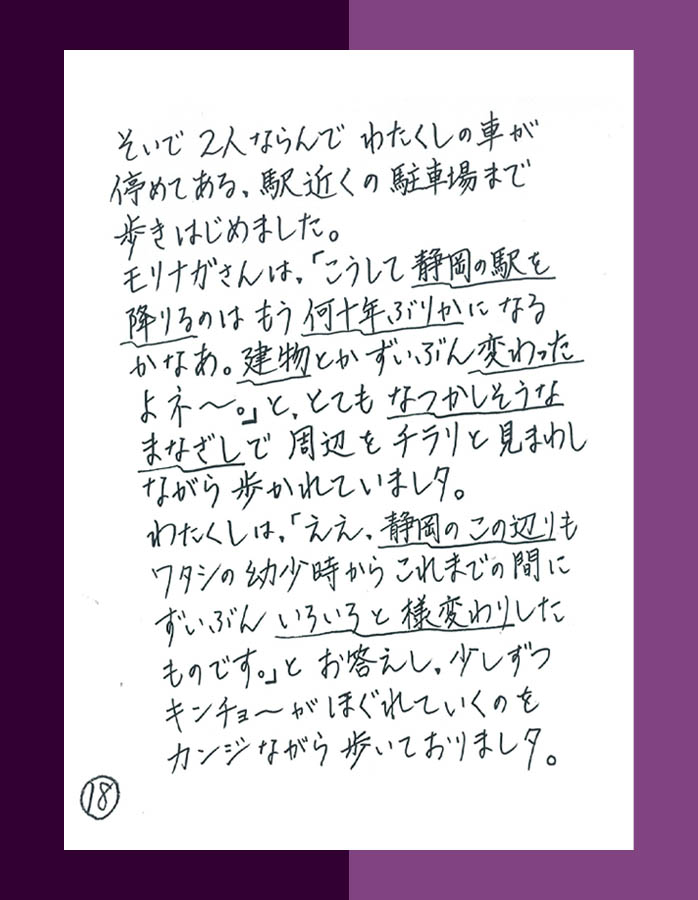 そいで 2人ならんで わたくしの車が
停めてある、駅近くの駐車場まで
歩きはじめました。
モリナガさんは、「こうして静岡の駅を
降りるのは もう 何十年ぶりかに なる
かなあ。建物とか ずいぶん変わった
よネ〜。」と、とても なつかしそうな
まなざしで 周辺を チラリと 見まわし
ながら 歩かれていましタ。
わたくしは、「ええ、静岡の この辺りも
ワタシの 幼少時から これまでの 間に
ずいぶん いろいろと 様変わりした
ものです。」と お答えし、少しずつ
キンチョ〜が ほぐれていくのを
カンジながら 歩いておりましタ。
18